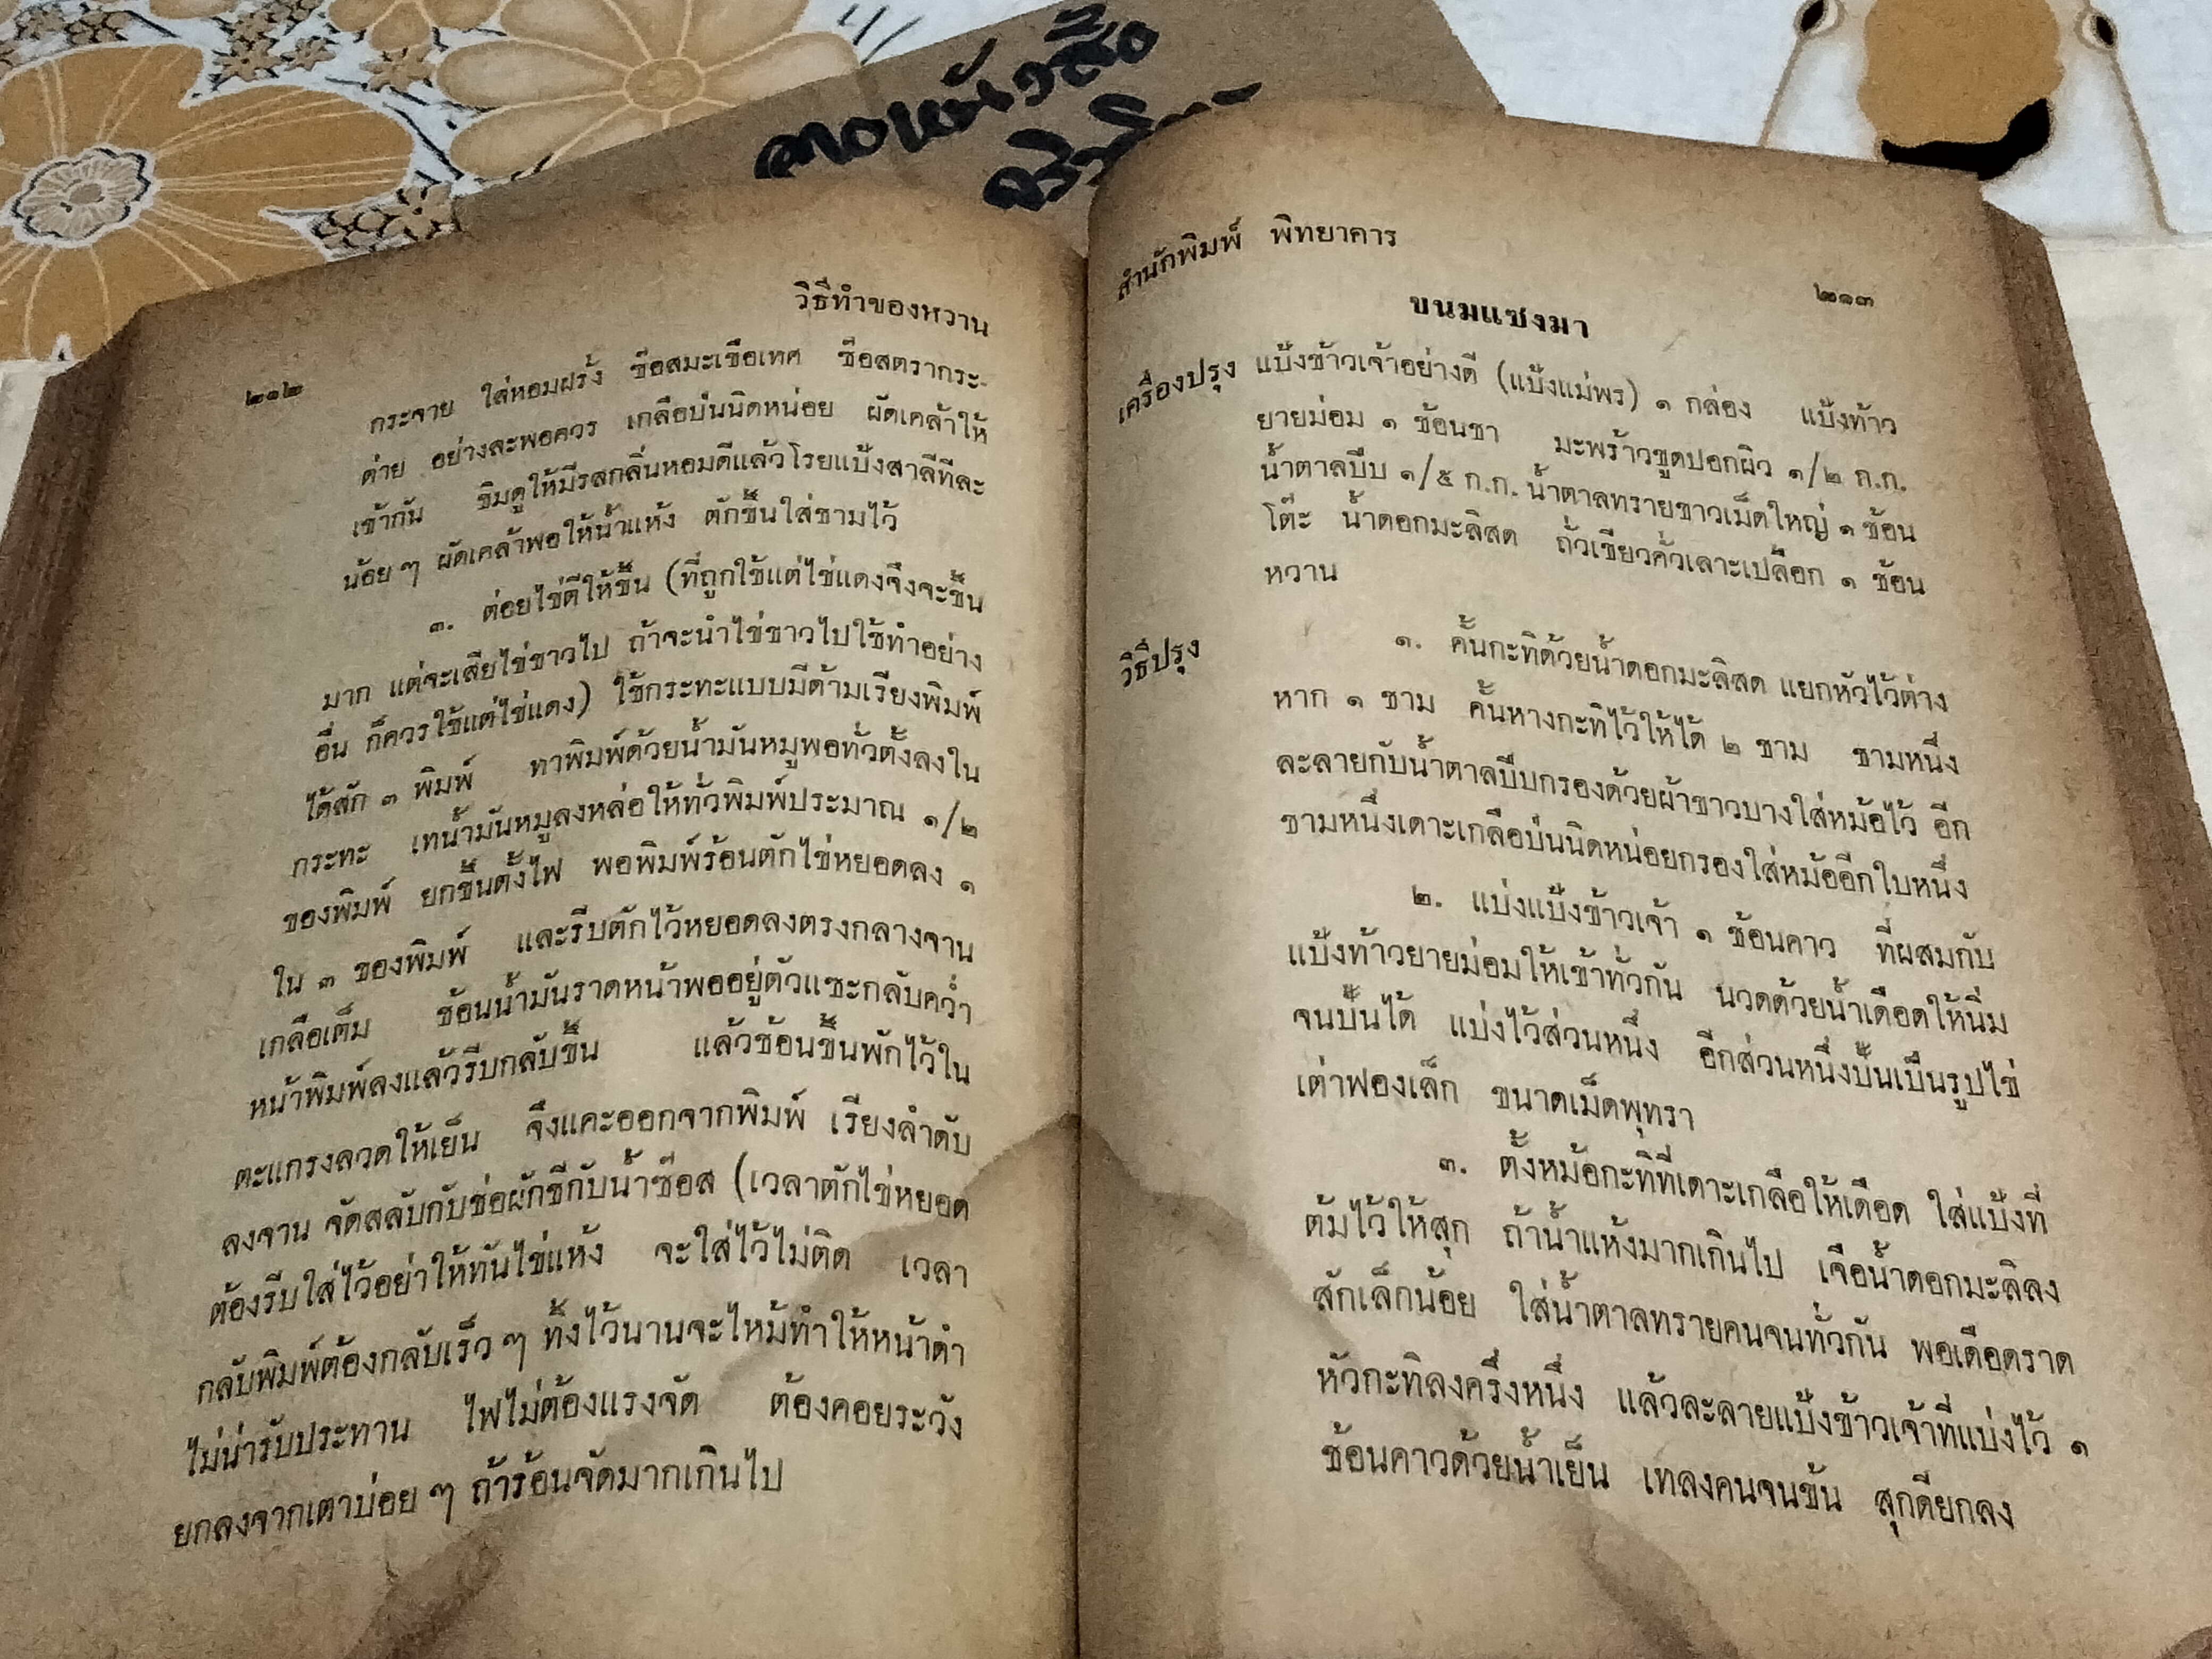 วิธีทำของหวาน
๒๑๒
กระจาย ใส่หอมฝรั่ง ซ๊อสมะเขือเทศ ซ๊อสตรากระ-
ต่าย อย่างละพอควร เกลือป่นนิดหน่อย ผัดเคล้าให้
เข้ากัน ชิมดูให้มีรสกลิ่นหอมดีแล้วโรยแป้งสาลีทีละ
น้อย ๆ ผัดเคล้าพอให้น้ำแห้ง ตักขึ้นใส่ชามไว้
๓. ต่อยไข่ตีให้ขึ้น (ที่ถูกใช้แต่ไข่แดงจึงจะขึ้น
มาก แต่จะเสียไข่ขาวไป ถ้าจะนำไข่ขาวไปใช้ทำอย่าง
อื่น ก็ควรใช้แต่ไข่แดง) ใช้กระทะแบบมีด้ามเรียงพิมพ์
ได้สัก ๓ พิมพ์ ทาพิมพ์ด้วยน้ำมันหมูพอทั่วตั้งลงใน
กระทะ เทน้ำมันหมูลงหล่อให้ทั่วพิมพ์ประมาณ ๑/๒
ของพิมพ์ ยกขึ้นตั้งไฟ พอพิมพ์ร้อนตักไข่หยอดลง ๑
ใน ๓ ของพิมพ์ และรีบตักไว้หยอดลงตรงกลางจาน
เกลือเต็ม ช้อนน้ำมันราดหน้าพออยู่ตัวแซะกลับคว่ำ
หน้าพิมพ์ลงแล้วรีบกลับขึ้น แล้วช้อนขึ้นพักไว้ใน
ตะแกรงลวดให้เย็น จึงแคะออกจากพิมพ์ เรียงลำดับ
ลงจาน จัดสลับกับช่อผักชีกับน้ำซ๊อส (เวลาตักไข่หยอด
ต้องรีบใส่ไว้อย่าให้ทันไข่แห้ง จะใส่ไว้ไม่ติด เวลา
กลับพิมพ์ต้องกลับเร็ว ๆ ทิ้งไว้นานจะไหม้ทำให้หน้าดำ
ไม่น่ารับประทาน ไฟไม่ต้องแรงจัด ต้องคอยระวัง
ยกลงจากเตาบ่อย ๆ ถ้าร้อนจัดมากเกินไป
สำนักพิมพ์ พิทยาคาร
๒๑๓
ขนมแชงมา
เครื่องปรุง แป้งข้าวเจ้าอย่างดี (แป้งแม่พร) ๑ กล่อง แป้งท้าว
ยายม่อม ๑ ช้อนชา มะพร้าวขูดปอกผิว ๑/๒ ก.ก.
น้ำตาลปีบ ๑/๕ ก.ก. น้ำตาลทรายขาวเม็ดใหญ่ ๑ ช้อน
โต๊ะ น้ำดอกมะลิสด ถั่วเขียวคั่วเลาะเปลือก ๑ ช้อน
หวาน
วิธีปรุง ๑. คั้นกะทิด้วยน้ำดอกมะลิสด แยกหัวไว้ต่าง
หาก ๑ ชาม คั้นหางกะทิไว้ให้ได้ ๒ ชาม ชามหนึ่ง
ละลายกับน้ำตาลปีบกรองด้วยผ้าขาวบางใส่หม้อไว้ อีก
ชามหนึ่งเดาะเกลือป่นนิดหน่อยกรองใส่หม้ออีกใบหนึ่ง
๒. แบ่งแป้งข้าวเจ้า ๑ ช้อนคาว ที่ผสมกับ
แป้งท้าวยายม่อมให้เข้าทั่วกัน นวดด้วยน้ำเดือดให้นิ่ม
จนปั้นได้ แบ่งไว้ส่วนหนึ่ง อีกส่วนหนึ่งปั้นเป็นรูปไข่
เต่าฟองเล็ก ขนาดเม็ดพุทรา
๓. ตั้งหม้อกะทิที่เดาะเกลือให้เดือด ใส่แป้งที่
ต้มไว้ให้สุก ถ้าน้ำแห้งมากเกินไป เจือน้ำดอกมะลิลง
สักเล็กน้อย ใส่น้ำตาลทรายคนจนทั่วกัน พอเดือดราด
หัวกะทิลงครึ่งหนึ่ง แล้วละลายแป้งข้าวเจ้าที่แบ่งไว้ ๑
ช้อนคาวด้วยน้ำเย็น เทลงคนจนข้น สุกดียกลง